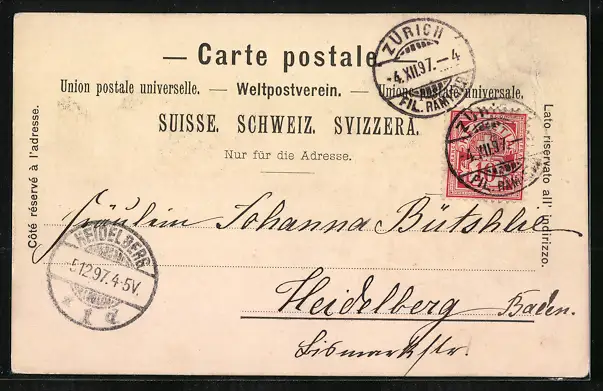 — Carte postale
Union postale universelle. — Weltpostverein. — Unione postale universale.
SUISSE. SCHWEIZ. SVIZZERA.
Nur für die Adresse.
Côté réservé à l'adresse.
Lato riservato all' indirizzo.
ZÜRICH
-4.XII.97.-4
FIL. RÄMISTR.
ZÜRICH
-4.XII.97.-
FIL. RÄMISTR.
HEIDELBERG
5.12.97.4-5V.
Fräulein Johanna
Heidelberg Baden.
Bismarckstr.